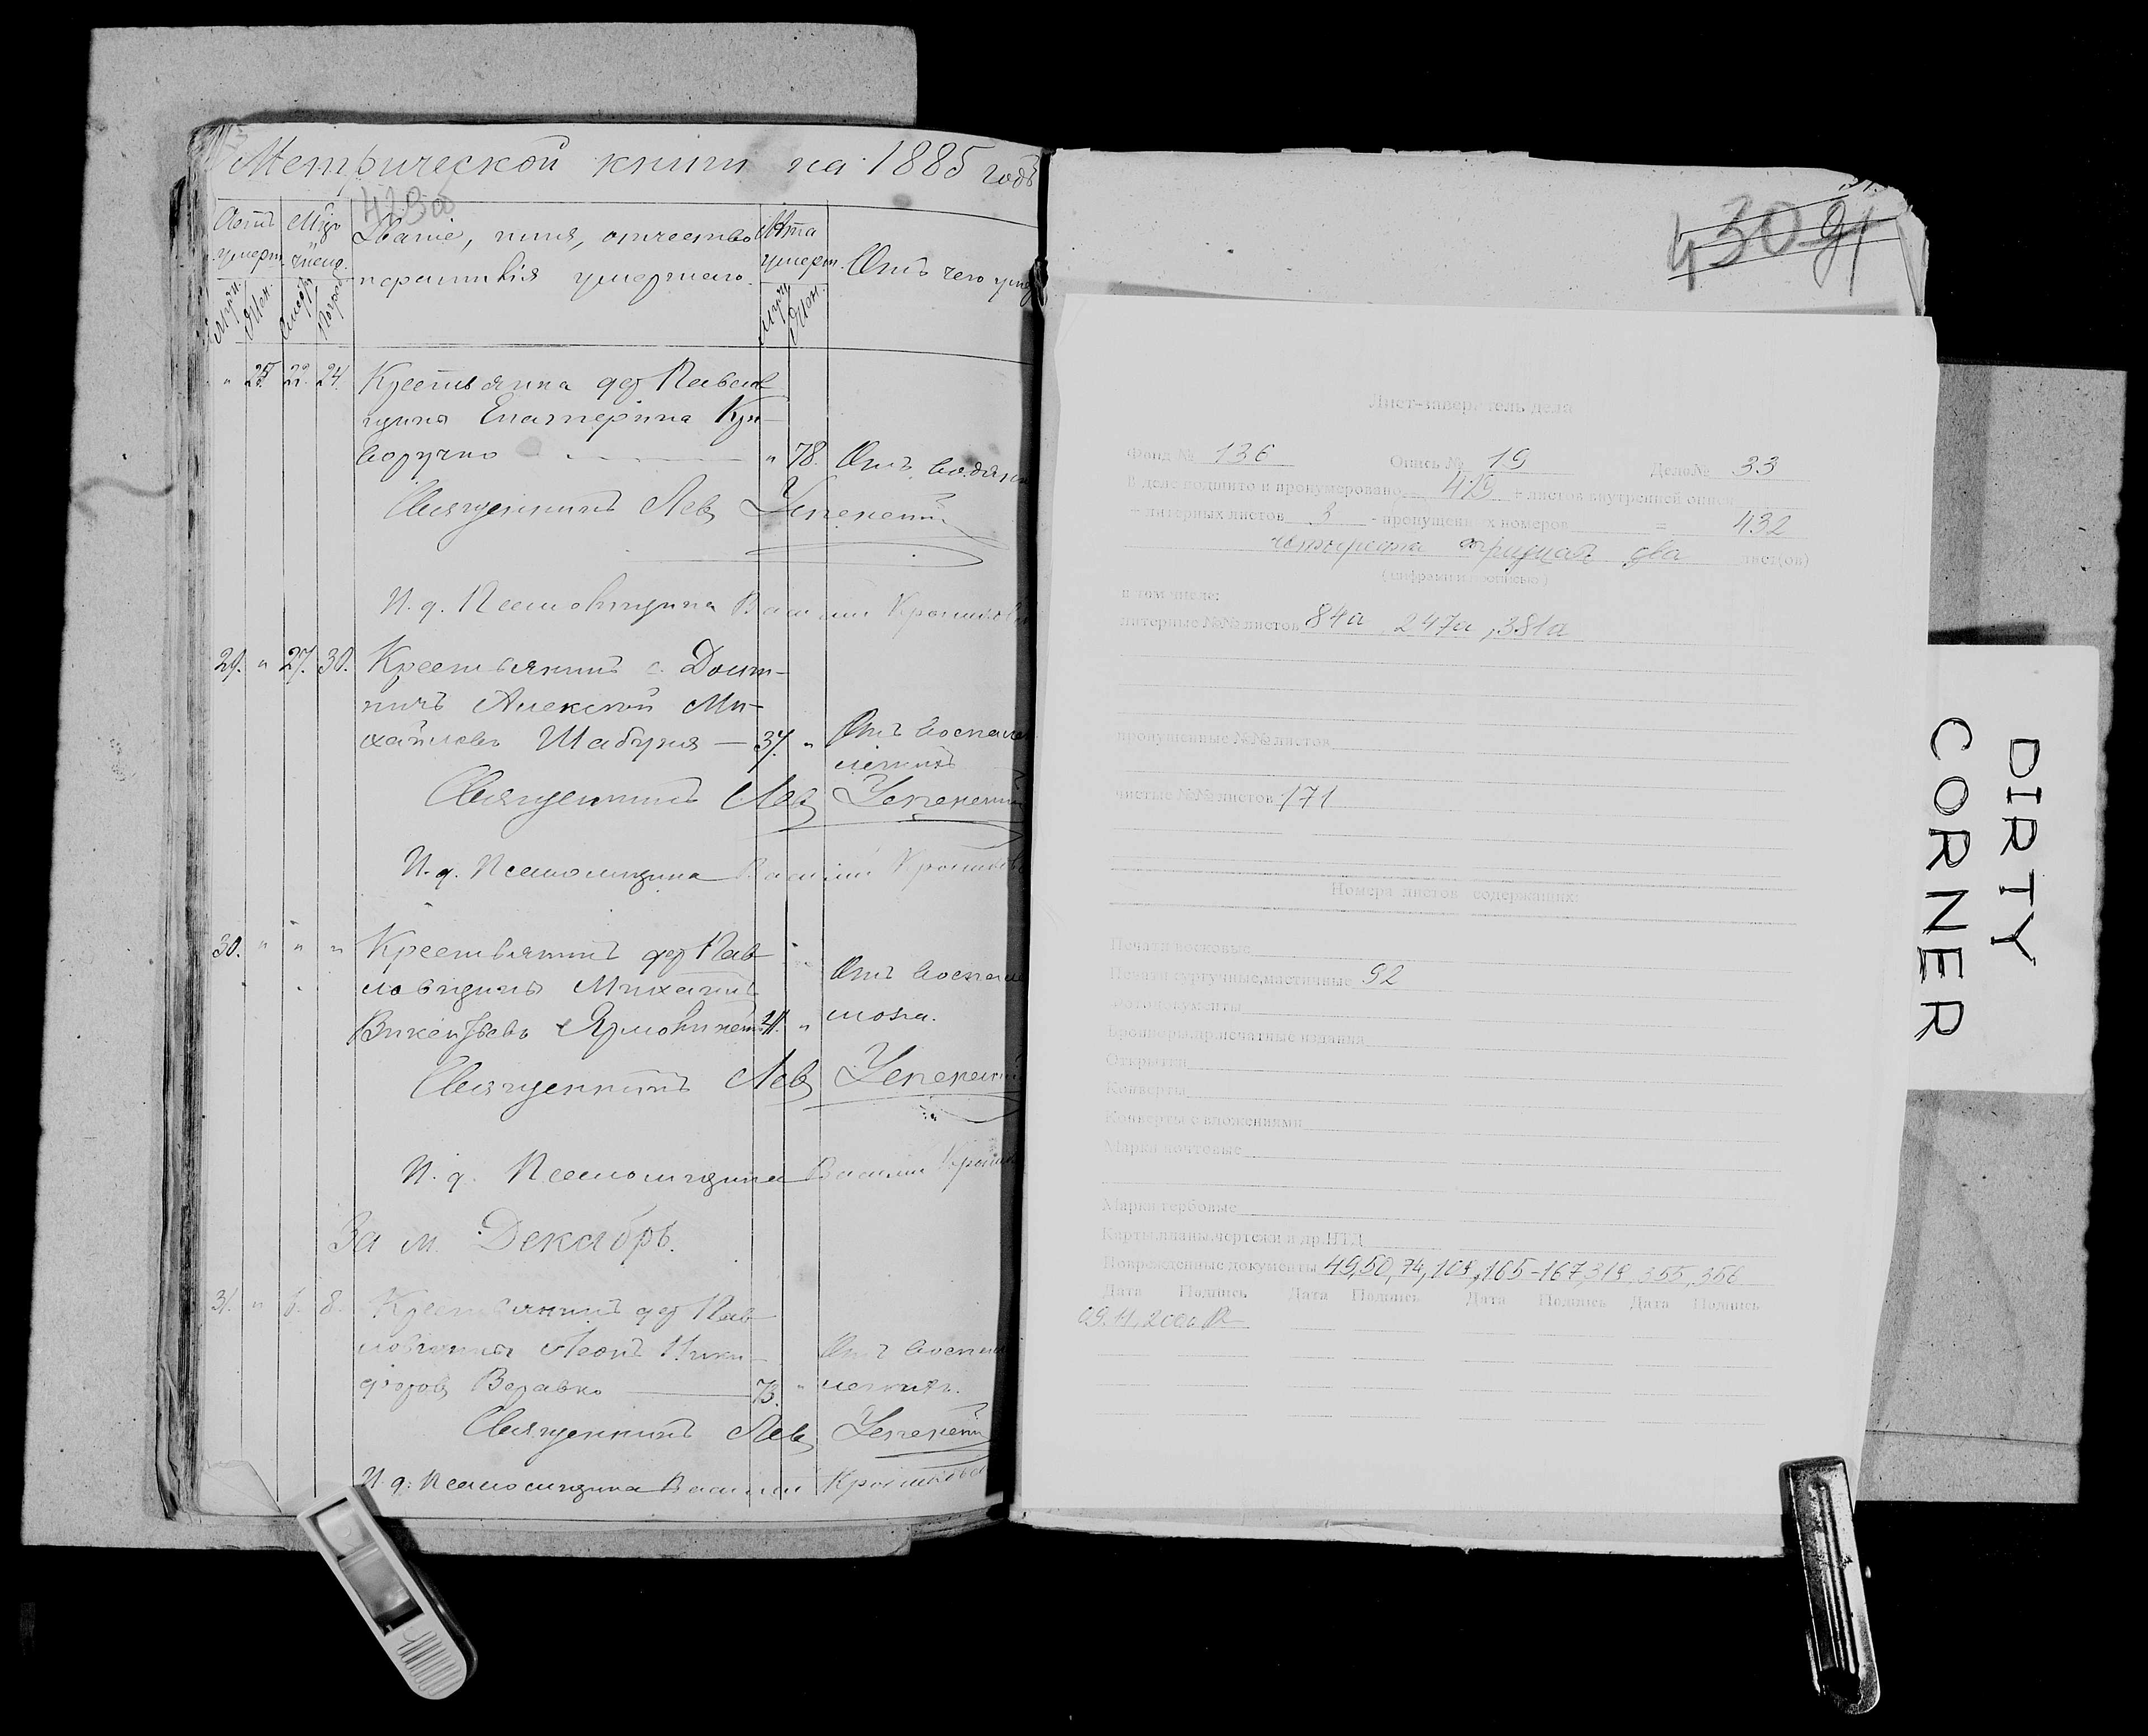 Метрической книги на 1885 годъ
429об
Счетъ умерш.
Мѣс. и день
Званіе, имя, отчество
и фамилія умершаго.
Лѣта умерш.
Отъ чего умер
" 25. 22. 24. Крестьянка дер. Павлов
щина Екатерина Кри-
воручко " 78. Отъ водян
Священникъ Левъ Успенскій
И. д. Псаломщика Василій
29. " 27. 30. Крестьянинъ с.
Алексей Ми-
хайловъ Шабуня — 37. " Отъ воспа
ленія
Священникъ Левъ Успенскій
И. д. Псаломщика Василій
30. " " " Крестьянинъ дер. Пав
ловщины Михаилъ
Викентьевъ " Отъ воспал
мозга.
Священникъ Левъ Успенскій
И. д. Псаломщика Василій
За м. Декабрь.
31. " 6. 8. Крестьянинъ дер. Пав
ловщина Леонъ Ники-
форовъ 73. " Отъ воспа
ленія.
Священникъ Левъ Успенскій
И. д. Псаломщика Василій
430
Лист-заверитель дела
Фонд № 136 Опись № 19 Дело № 33
В деле подшито и пронумеровано 429 + листов внутренней описи
+ литерных листов 3 - пропущенных номеров = 432
четыреста тридцать два лист(ов)
(цифрами и прописью)
в том числе:
литерные №№ листов 84а, 247а, 381а
пропущенные №№ листов
чистые №№ листов 171
Номера листов содержащих:
Печати восковые
Печати сургучные, мастичные 92
Фотодокументы
Брошюры, пр. печатные издания
Открытки
Конверты
Конверты с вложениями
Марки почтовые
Марки гербовые
Карты, планы, чертежи и др. НТД
Поврежденные документы 49,50,74,109,165-167,319,355,356
Дата Подпись Дата Подпись Дата Подпись Дата Подпись
09.11.
DIRTY
CORNER